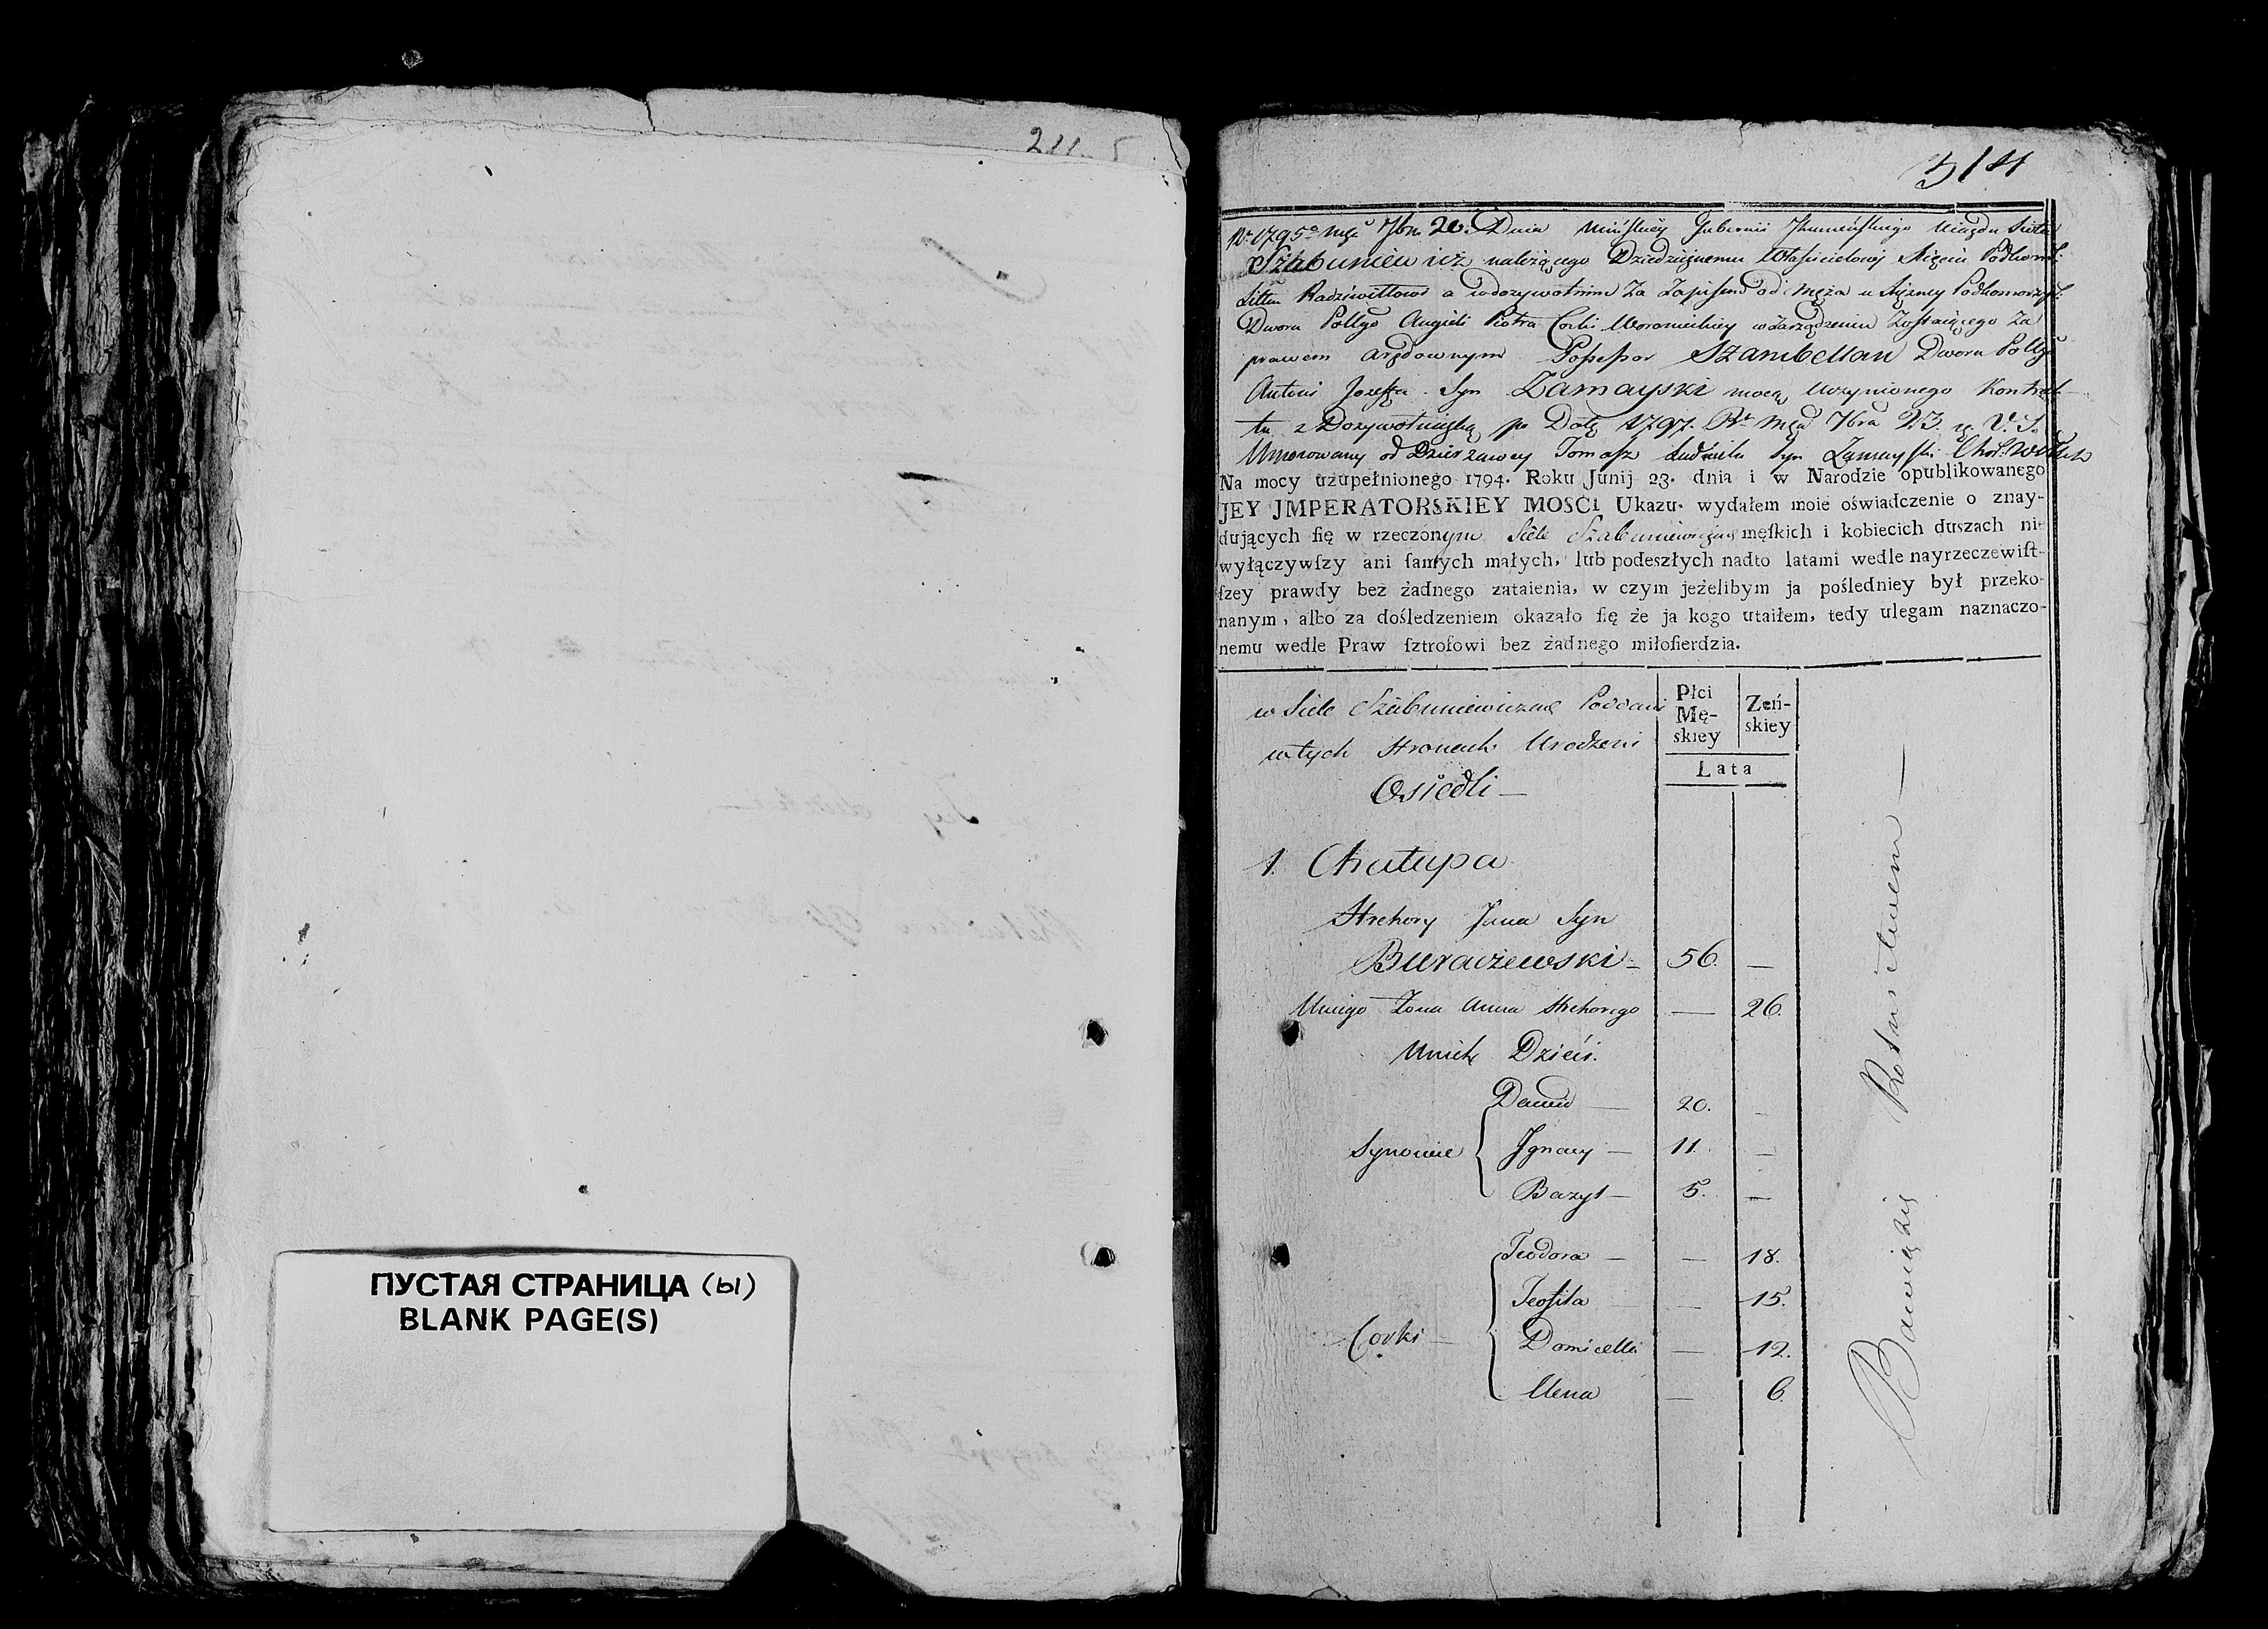 514
Rku 1795º mca 7bra 20. Dnia Mińskiey Gubernii Jhumeńskiego Ujazdu Sioła
Szabuniewicz należącego Dziedzicznemu Właścicielowi
Radziwiłłowi a w dożywotnim za Zapisem od Męża u
Dworu Polłgo Angieli Piotra Corki w Zarządzeniu Zostaiącego Za
prawem arędownym Possessor Szambellan Dworu Pollgo
Antoni Jozefa Syn Zamayski mocą Uczynionego Kontrak-
tu z Dożywotniczką po Datą 1797. Rku Mca 7bra 23. V. S.
Umocowany od Dzierzawcy Tomasz Syn Zamayski
Na mocy uzupełnionego 1794. Roku Junij 23. dnia i w Narodzie opublikowanego
JEY JMPERATORSKIEY MOSCI Ukazu. wydałem moie oświadczenie o znay-
duiących ſię w rzeczonym Siele Szabuniewiczach męſkich i kobiecich duszach ni-
wyłączywſzy ani ſamych małych, lub podeszłych nadto latami wedle nayrzeczewiſt-
ſzey prawdy bez żadnego zataienia, w czym jeżelibym ja pośledniey był przeko-
nanym, albo za dośledzeniem okazało ſię że ja kogo utaiłem, tedy ulegam naznaczo-
nemu wedle Praw ſztrofowi bez żadnego miłoſierdzia.
w Siele Szabuniewiczach Poddani
w tych Stronach Urodzeni
Osiedli —
Płci Mę- skiey
Zeń- skiey
Lata
1. Chałupa
Hrehory Jana Syn
Buraczewski — 56. —
U niego Żona Anna Hrehorego — 26.
U nich Dzieci.
Dawid — 20. —
Synowie Jgnacy — 11. —
Bazyl — 5. —
Teodora — — 18.
Teofila — — 15.
Corki — Domicella — 12.
Ulena — 6.
ПУСТАЯ СТРАНИЦА (ы)
BLANK PAGE(S)